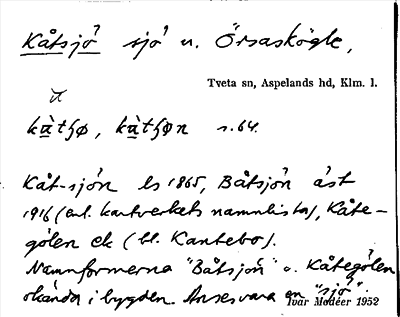 Kåtsjö sjö u. Örsaskögle,
Tveta sn, Aspelands hd, Klm. l.
kàtʃø, kàtʃøn s. 64.
Kåt-sjön ls 1865, Båtsjön åst
1916 (enl. kartverkets namnlista), Kåte-
gölen ek (bl. Kantebo).
Namnformerna "Båtsjön" o. Kåtegölen
okända i bygden. Anses vara en "sjö".
Ivar Modéer 1952